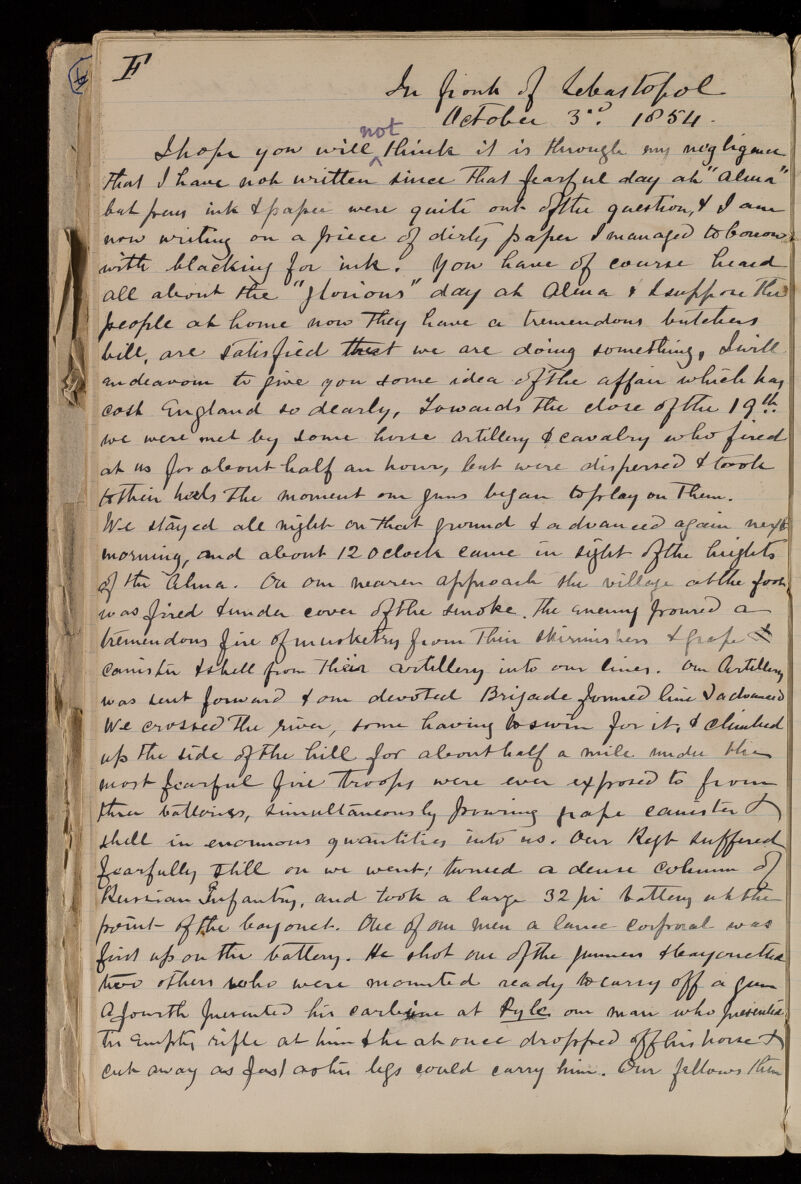 F
In front of Sebastopol
October 3rd. 1854.
not
I hope you will think it is through my negligence
that I have not written since that fearful day at "Alma"
but pens ink & paper were quite out of the question, & I am
now writing on a piece of dirty paper I managed to borrow
with blacking for ink. You have of course heard
all about the "glorious" day at Alma & I suppose the
people at home now they have a tremendous butchers
bill, are satisfied that we are doing something, I will
endeavour to give you some idea of the affair which has
cost England so dearly, Towards the close of the 19th.
we were met by some horse artillery & cavalry who fired
at us for about half an hour, but were dispersed & took
to their heels the moment our guns began to play on them.
We stayed all night on that ground & advanced again next
morning, and about 12 oclock came in sight of the heights
of the Alma. On our nearer approach the village at the foot
was fired & under cover of the smoke. The enemy poured a
tremendous fire of musketry from their skirmishers & grape &
canister & shell from their artillery into our lines. Our Artillery
was sent forward & our devoted Brigade formed line & advanced
We crossed the river, some having to swim for it, & climbed
up the side of the hill for about half a mile under the
most fearful fire troops were ever exposed to from
three batteries, simultaneously pouring grape canister &
shell in enormous quantities into us. Our Regt suffered
fearfully still on we went; turned a dense column of
Russian Infantry, and took a large 32 pr battery at the
point of the bayonet. One of our men a lance corporal was
first up on the battery. He shot one of the gunners & bayonetted
two others who were mounted ready to carry off a gun
A fourth presented his carbine at Pyle our man who presented
the empty rifle at him & he at once dropped off his horse &
cut away as fast as his legs could carry him. Our fellows then